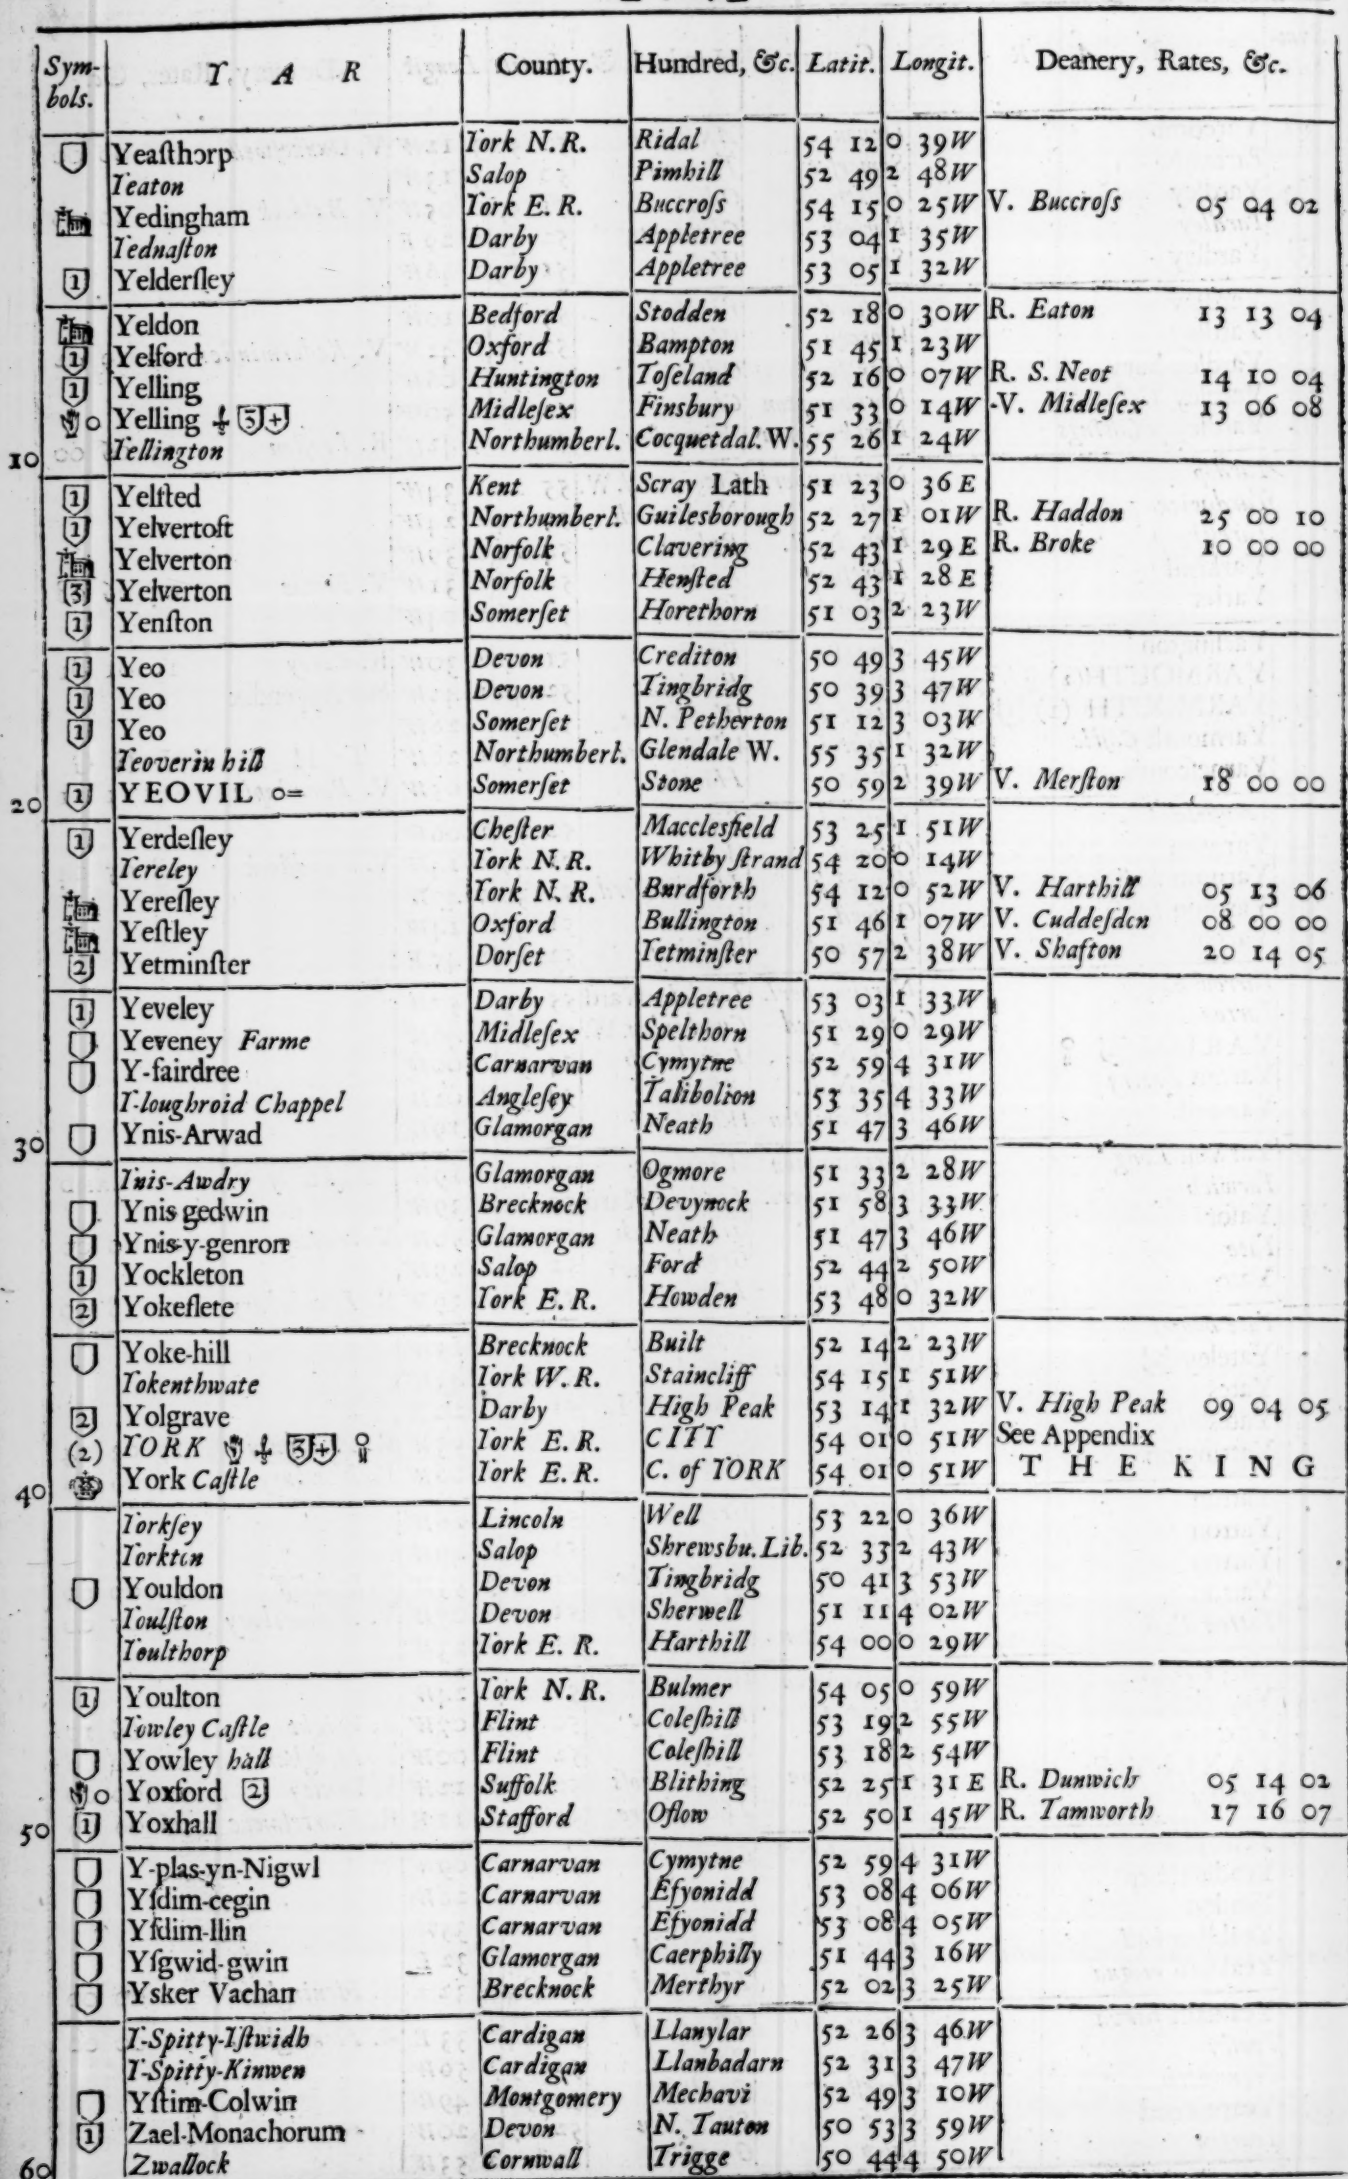 Sym-bols. Y A R County. Hundred, &c. Latit. Longit. Deanery, Rates, &c.
Yeaſthorp York N.R. Ridal 54 12 0 39W
Yeaton Salop Pimhill 52 49 2 48W
Yedingham York E.R. Buccroſs 54 15 0 25W V. Buccroſs 05 04 02
Yednaſton Darby Appletree 53 04 1 35W
1 Yelderſley Darby Appletree 53 05 1 32W
Yeldon Bedford Stodden 52 18 0 30W R. Eaton 13 13 04
1 Yelford Oxford Bampton 51 45 1 23W
1 Yelling Huntington Toſeland 52 16 0 07W R. S. Neot 14 10 04
Yelling 3+ Midleſex Finsbury 51 33 0 14W V. Midleſex 13 06 08
10 Yellington Northumberl. Cocquetdal. W. 55 26 1 24W
1 Yelſted Kent Scray Lath 51 23 0 36E
1 Yelvertoft Northumberl. Guilesborough 52 27 1 01W R. Haddon 25 00 10
Yelverton Norfolk Clavering 52 43 1 29E R. Broke 10 00 00
3 Yelverton Norfolk Henſted 52 43 1 28E
1 Yenſton Somerſet Horethorn 51 03 2 23W
1 Yeo Devon Crediton 50 49 3 45W
1 Yeo Devon Tingbridg 50 39 3 47W
1 Yeo Somerſet N. Petherton 51 12 3 03W
Yeoverin hill Northumberl. Glendale W. 55 35 1 32W
20 1 YEOVIL o= Somerſet Stone 50 59 2 39W V. Merſton 18 00 00
1 Yerdeſley Cheſter Macclesfield 53 25 1 51W
Yereley York N.R. Whitby ſtrand 54 20 0 14W
Yereſley York N.R. Burdforth 54 12 0 52W V. Harthill 05 13 06
Yeſtley Oxford Bullington 51 46 1 07W V. Cuddeſden 08 00 00
2 Yetminſter Dorſet Yetminſter 50 57 2 38W V. Shafton 20 14 05
1 Yeveley Darby Appletree 53 03 1 33W
Yeveney Farme Midleſex Spelthorn 51 29 0 29W
Y-fairdree Carnarvan Cymytne 52 59 4 31W
Y-loughroid Chappel Angleſey Talibolion 53 35 4 33W
30 Ynis-Arwad Glamorgan Neath 51 47 3 46W
Ynis-Awdry Glamorgan Ogmore 51 33 2 28W
Ynis gedwin Brecknock Devynock 51 58 3 33W
Ynis-y-genron Glamorgan Neath 51 47 3 46W
1 Yockleton Salop Ford 52 44 2 50W
2 Yokeflete York E.R. Howden 53 48 0 32W
Yoke-hill Brecknock Built 52 14 2 23W
Yokenthwate York W.R. Staincliff 54 15 1 51W
2 Yolgrave Darby High Peak 53 14 1 32W V. High Peak 09 04 05
(2) YORK 3+ York E.R. CITY 54 01 0 51W See Appendix
40 York Caſtle York E.R. C. of YORK 54 01 0 51W THE KING
Yorkſey Lincoln Well 53 22 0 36W
Yorkton Salop Shrewsbu. Lib. 52 33 2 43W
Youldon Devon Tingbridg 50 41 3 53W
Youlſton Devon Sherwell 51 11 4 02W
Youlthorp York E.R. Harthill 54 00 0 29W
1 Youlton York N.R. Bulmer 54 05 0 59W
Yowley Caſtle Flint Coleſhill 53 19 2 55W
Yowley hall Flint Coleſhill 53 18 2 54W
Yoxford 2 Suffolk Blithing 52 25 1 31E R. Dunwich 05 14 02
50 1 Yoxhall Stafford Oflow 52 50 1 45W R. Tamworth 17 16 07
Y-plas-yn-Nigwl Carnarvan Cymytne 52 59 4 31W
Yſdim-cegin Carnarvan Efyonidd 53 08 4 06W
Yſdim-llin Carnarvan Efyonidd 53 08 4 05W
Yſgwid-gwin Glamorgan Caerphilly 51 44 3 16W
Ysker Vachan Brecknock Merthyr 52 02 3 25W
Y-Spitty-Yſtwidh Cardigan Llanylar 52 26 3 46W
Y-Spitty-Kinwen Cardigan Llanbadarn 52 31 3 47W
Yſtim-Colwin Montgomery Mechavi 52 49 3 10W
1 Zael-Monachorum Devon N. Tauton 50 53 3 59W
60 Zwallock Cornwall Trigge 50 44 4 50W